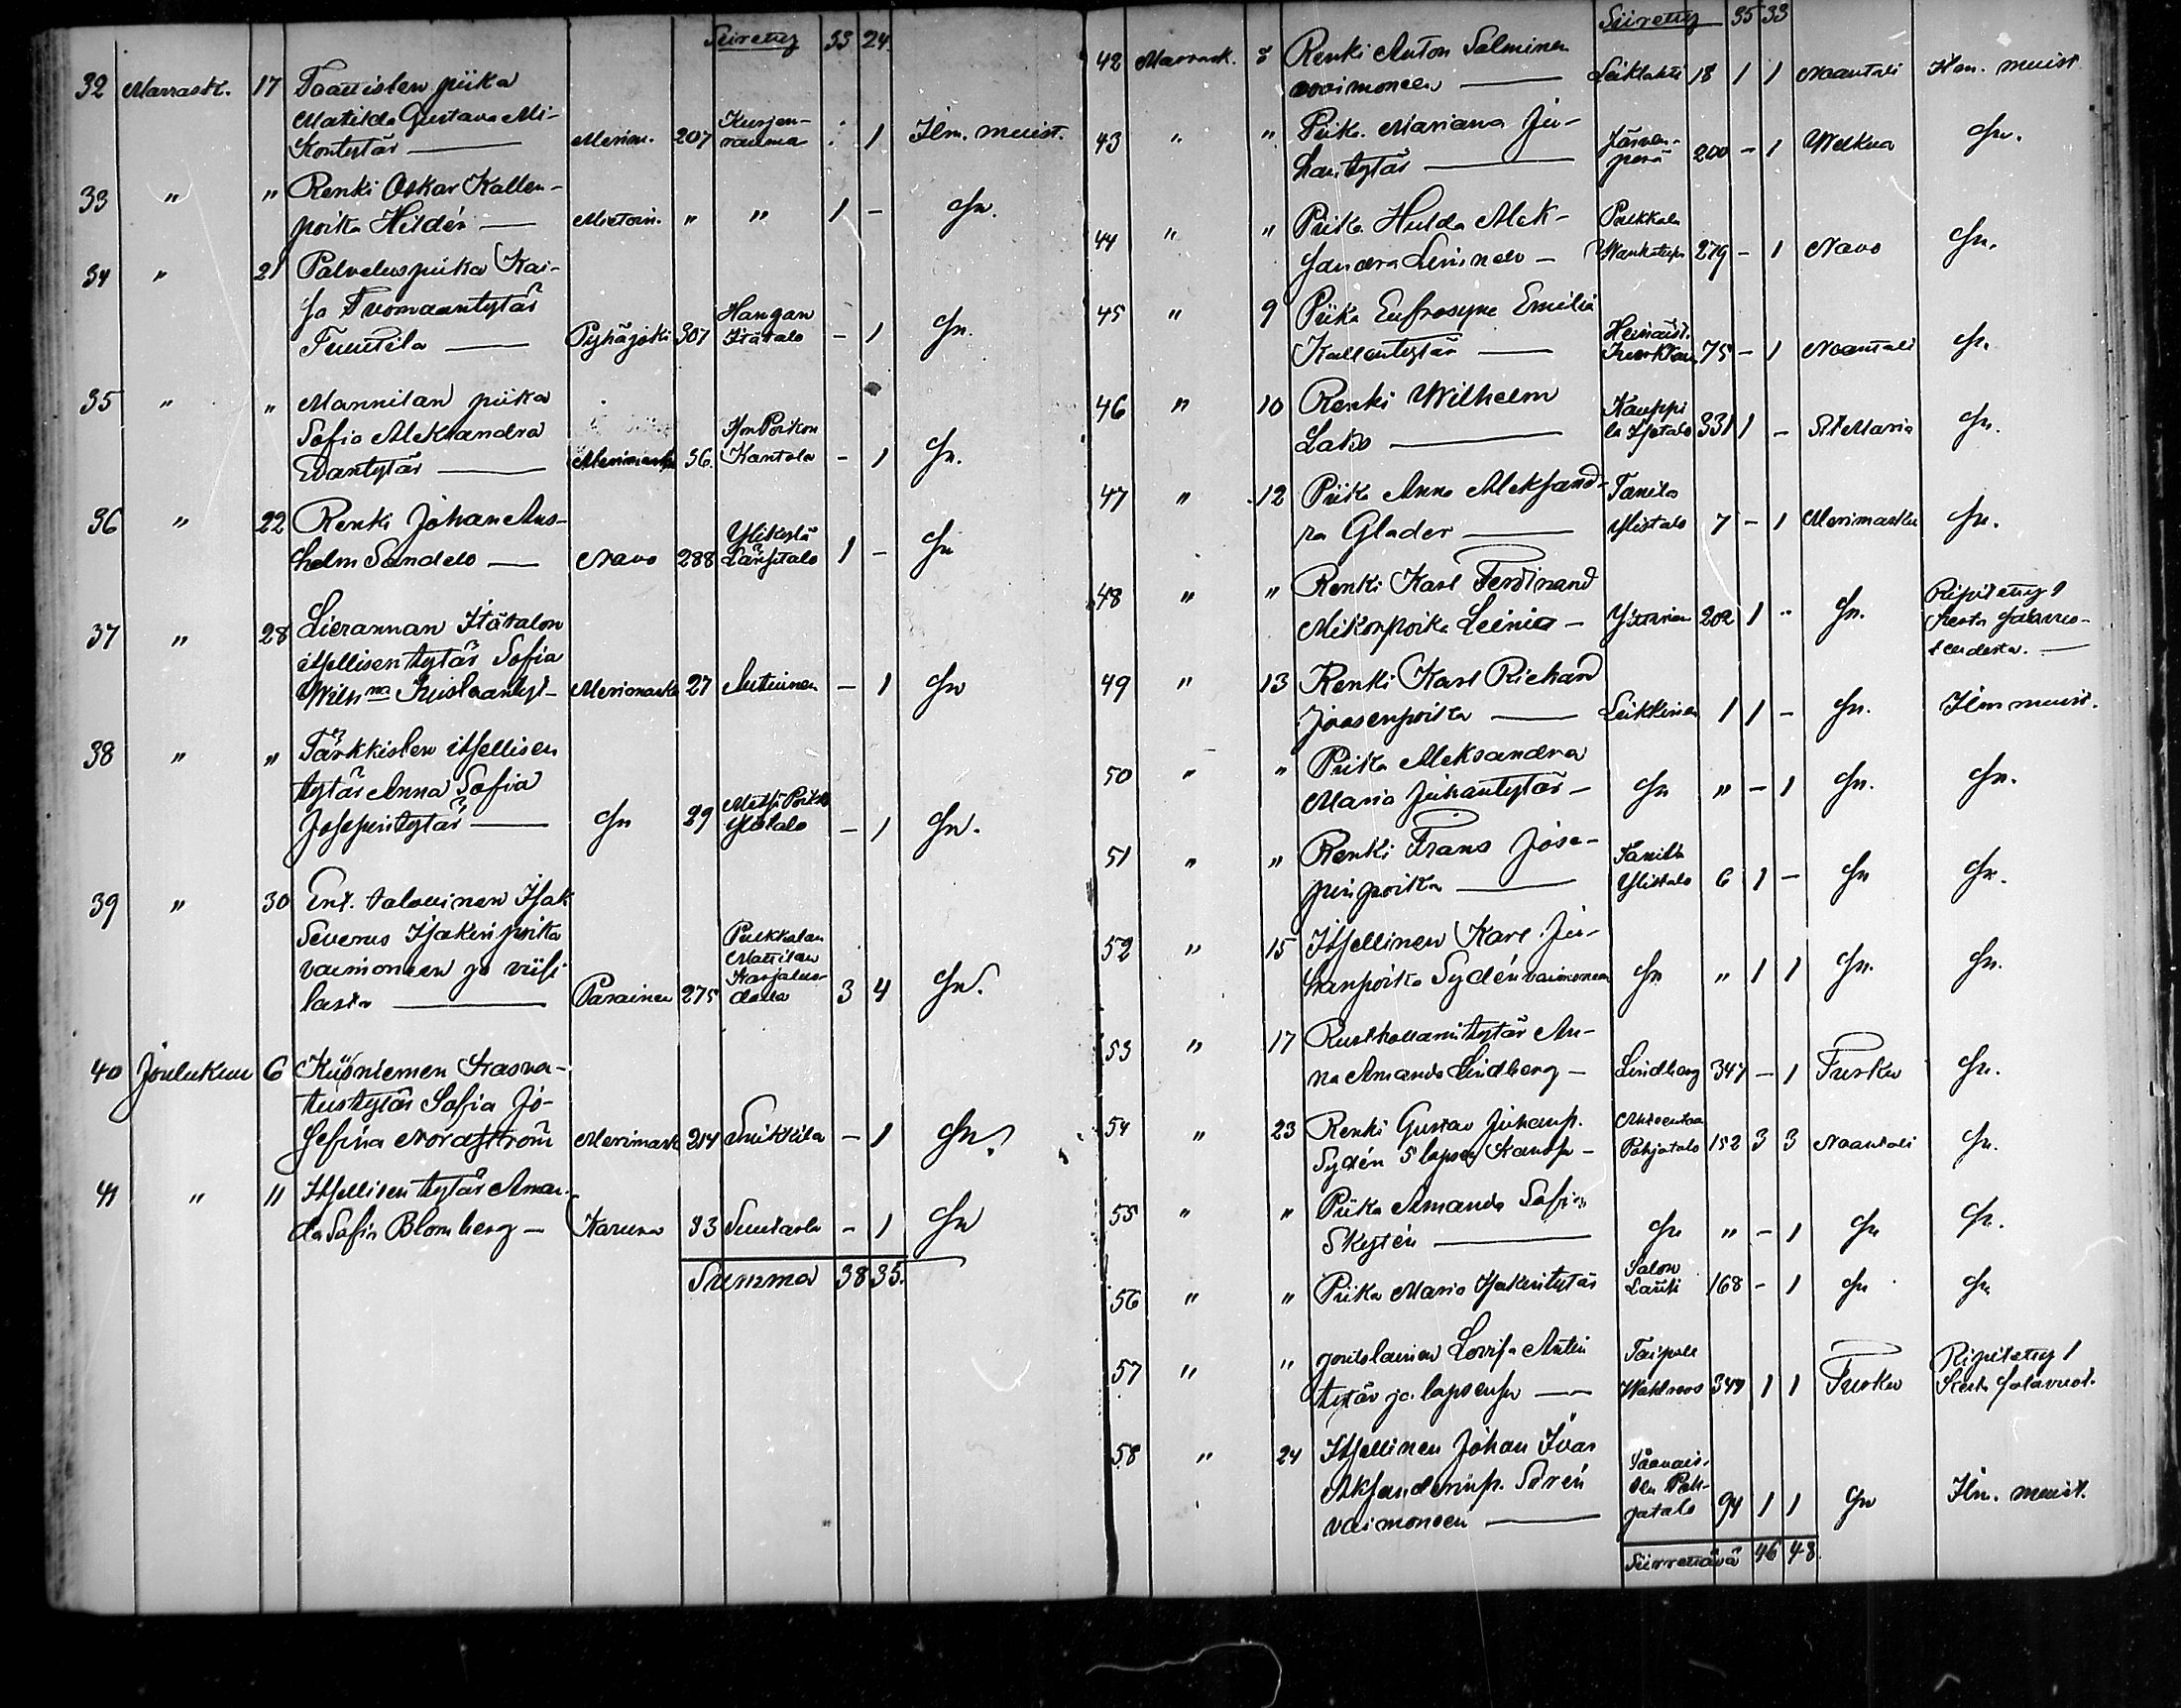 Siirretty 33 24
32 Marrask. 17 Taattisten piika
Matilda Gustava Mi-
kontytär — Merim. 207 Kurjen-
rauma - 1 Ilm. muist.
33 " " Renki Oskar Kallen-
poika Hildén — Mietoin. " " 1 - Sn.
34 " 21 Palveluspiika Kai-
sa Tuomaantytär
Tuutila — Pyhäjoki 307 Hangan
Itätalo - 1 Sn.
35 " " Mannilan piika
Sofia Aleksandra
Evantytär — Merimasku 56 Kantola - 1 Sn.
36 " 22 Renki Johan Ans-
helm Sandelo — Navo 288 Ylikylä
Länsitalo 1 - Sn
37 " 28 Lierannan Itätalon
itsellisen tytär Sofia
Wilhna Kustaantyt- Merimasku 27 - 1 Sn
38 " " Tärkkisten itsellisen
tytär Anna Sofia
Josepintytär — Sn 29
Ylistalo - 1 Sn.
39 " 30 Ent. talollinen Isak
Severus Isakinpoika
vaimoneen ja viisi
lasta — Parainen 275 Pukkalan
Mattilan
3 4 Sn.
40 Joulukuu 6 Kiisniemen kasva-
tustytär Sofia Jo-
sefina Nordström Merimask 214 Snikkila - 1 Sn.
41 " 11 Itsellisen tytär Aman-
da Sofia Blomberg — Karuna 83 - 1 Sn
Summa 38 35.
Siirretty 35 33
42 Marrask. Renki Anton Salminen
vaimoneen — Leiklahti 18 1 1 Naantali Ilm. muist
43 " " Piika Mariana Ju-
hantytär — Järven-
perä 200 - 1 Welkua Sn.
44 " " Piika Hulda Alek-
sandra Leinelo — Pukkala
279 - 1 Navo Sn.
45 " 9 Piika Eufrosyne Emilia
Kallentytär — Heinäist.
75 - 1 Naantali Sn.
46 " 10 Renki Wilhelm
Lako — Kauppi
la Isotalo 331 1 - St Maria Sn.
47 " 12 Piika Anna Aleksand-
ra Glader — Tanila
Ylistalo 7 - 1 Merimasku Sn.
48 " " Renki Karl Ferdinand
Mikonpoika Leinia — 202 1 - Sn. Ripitetty 1
kerta salavuo-
teudesta. —
49 " 13 Renki Karl Richard
Joosenpoika — Leikkinen 1 1 - Sn. Ilm muist.
50 " " Piika Aleksandra
Maria Juhantytär — Sn " - 1 Sn. Sn.
51 " " Renki Frans Jose-
pinpoika — Tanila
Ylistalo 6 1 - Sn Sn.
52 " 15 Itsellinen Karl Ju-
hanpoika Sydén vaimoneen Sn " 1 1 Sn. Sn.
53 " 17 Rusthollarin tytär An-
na Amanda Lindberg — Lindberg 347 - 1 Turku Sn.
54 " 23 Renki Gustav Juhanp.
Sydén 5 lapsen kanssa —
Pohjatalo 152 3 3 Naantali Sn.
55 " " Piika Amanda Sofia
Skytén — Sn " - 1 Sn Sn.
56 " " Piika Maria Isakintytär Salon
Lautti 168 - 1 Sn Sn
57 " " Loviisa Antin
tytär ja lapsensa — Taipale
Wahlroos 349 1 1 Turku Ripitetty 1
kerta salavuot.
58 " 24 Itsellinen Johan Ivar
Aksanderinp. Sorén
vaimoneen — Päänais-
ten Poh-
jatalo 94 1 1 Sn Ilm. muist.
Siirrettävä 46 48.